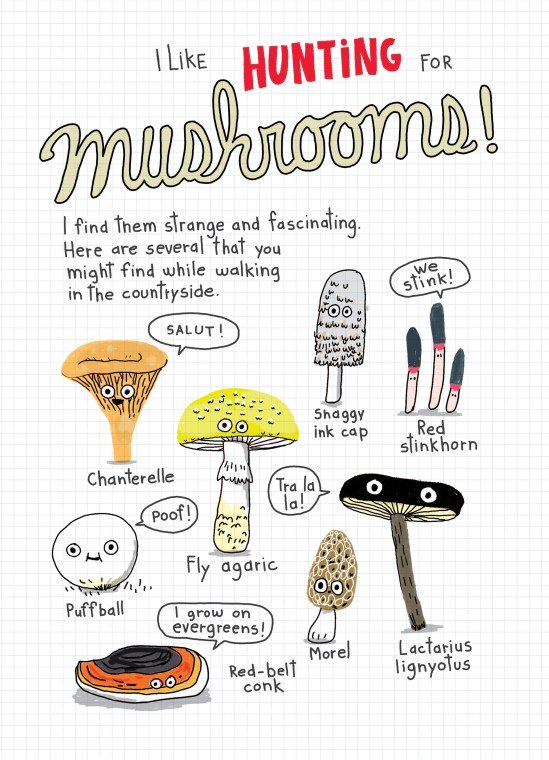 I LIKE HUNTiNG FOR
mushrooms!
I find them strange and fascinating.
Here are several that you
might find while walking
in the countryside.
we
stink!
SALUT!
Shaggy
ink cap
Red
stinkhorn
Chanterelle
Tra la
la!
Poof!
Fly agaric
Puffball
I grow on
evergreens!
Morel
Lactarius
lignyotus
Red-belt
conk